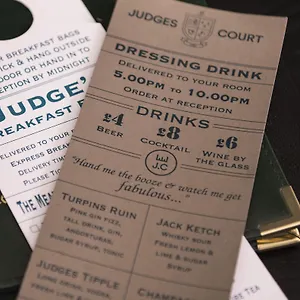 JUDGES COURT
DRESSING DRINK
DELIVERED TO YOUR ROOM
5.00PM TO 10.00PM
ORDER AT RECEPTION
DRINKS
£4 £8 £6
BEER COCKTAIL WINE BY
THE GLASS
J.C
"Hand me the booze & watch me get
fabulous..."
TURPINS RUIN
PINK GIN FIZZ,
TALL DRINK, GIN,
ANGOSTURAS,
SUGAR SYRUP, TONIC
JACK KETCH
WHISKY SOUR
FRESH LEMON &
LIME & SUGAR
SYRUP
JUDGES TIPPLE
LONG DRINK, VODKA
BREAKFAST BAGS
& HANG OUTSIDE
DOOR OR HAND IN TO
RECEPTION BY MIDNIGHT
JUDGE'
BREAKFAST
DELIVERED TO YOUR
EXPRESS
DELIVERY TIME
PLEASE
THE
TEA